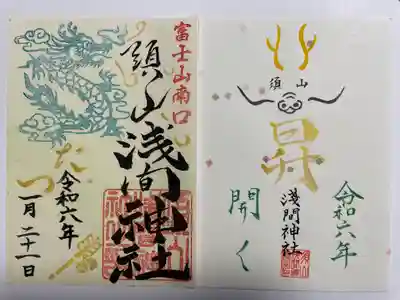 富士山南口
須山浅間神社
たつ
令和六年
一月二十一日
須山
昇
令和六年
淺間神社
開く